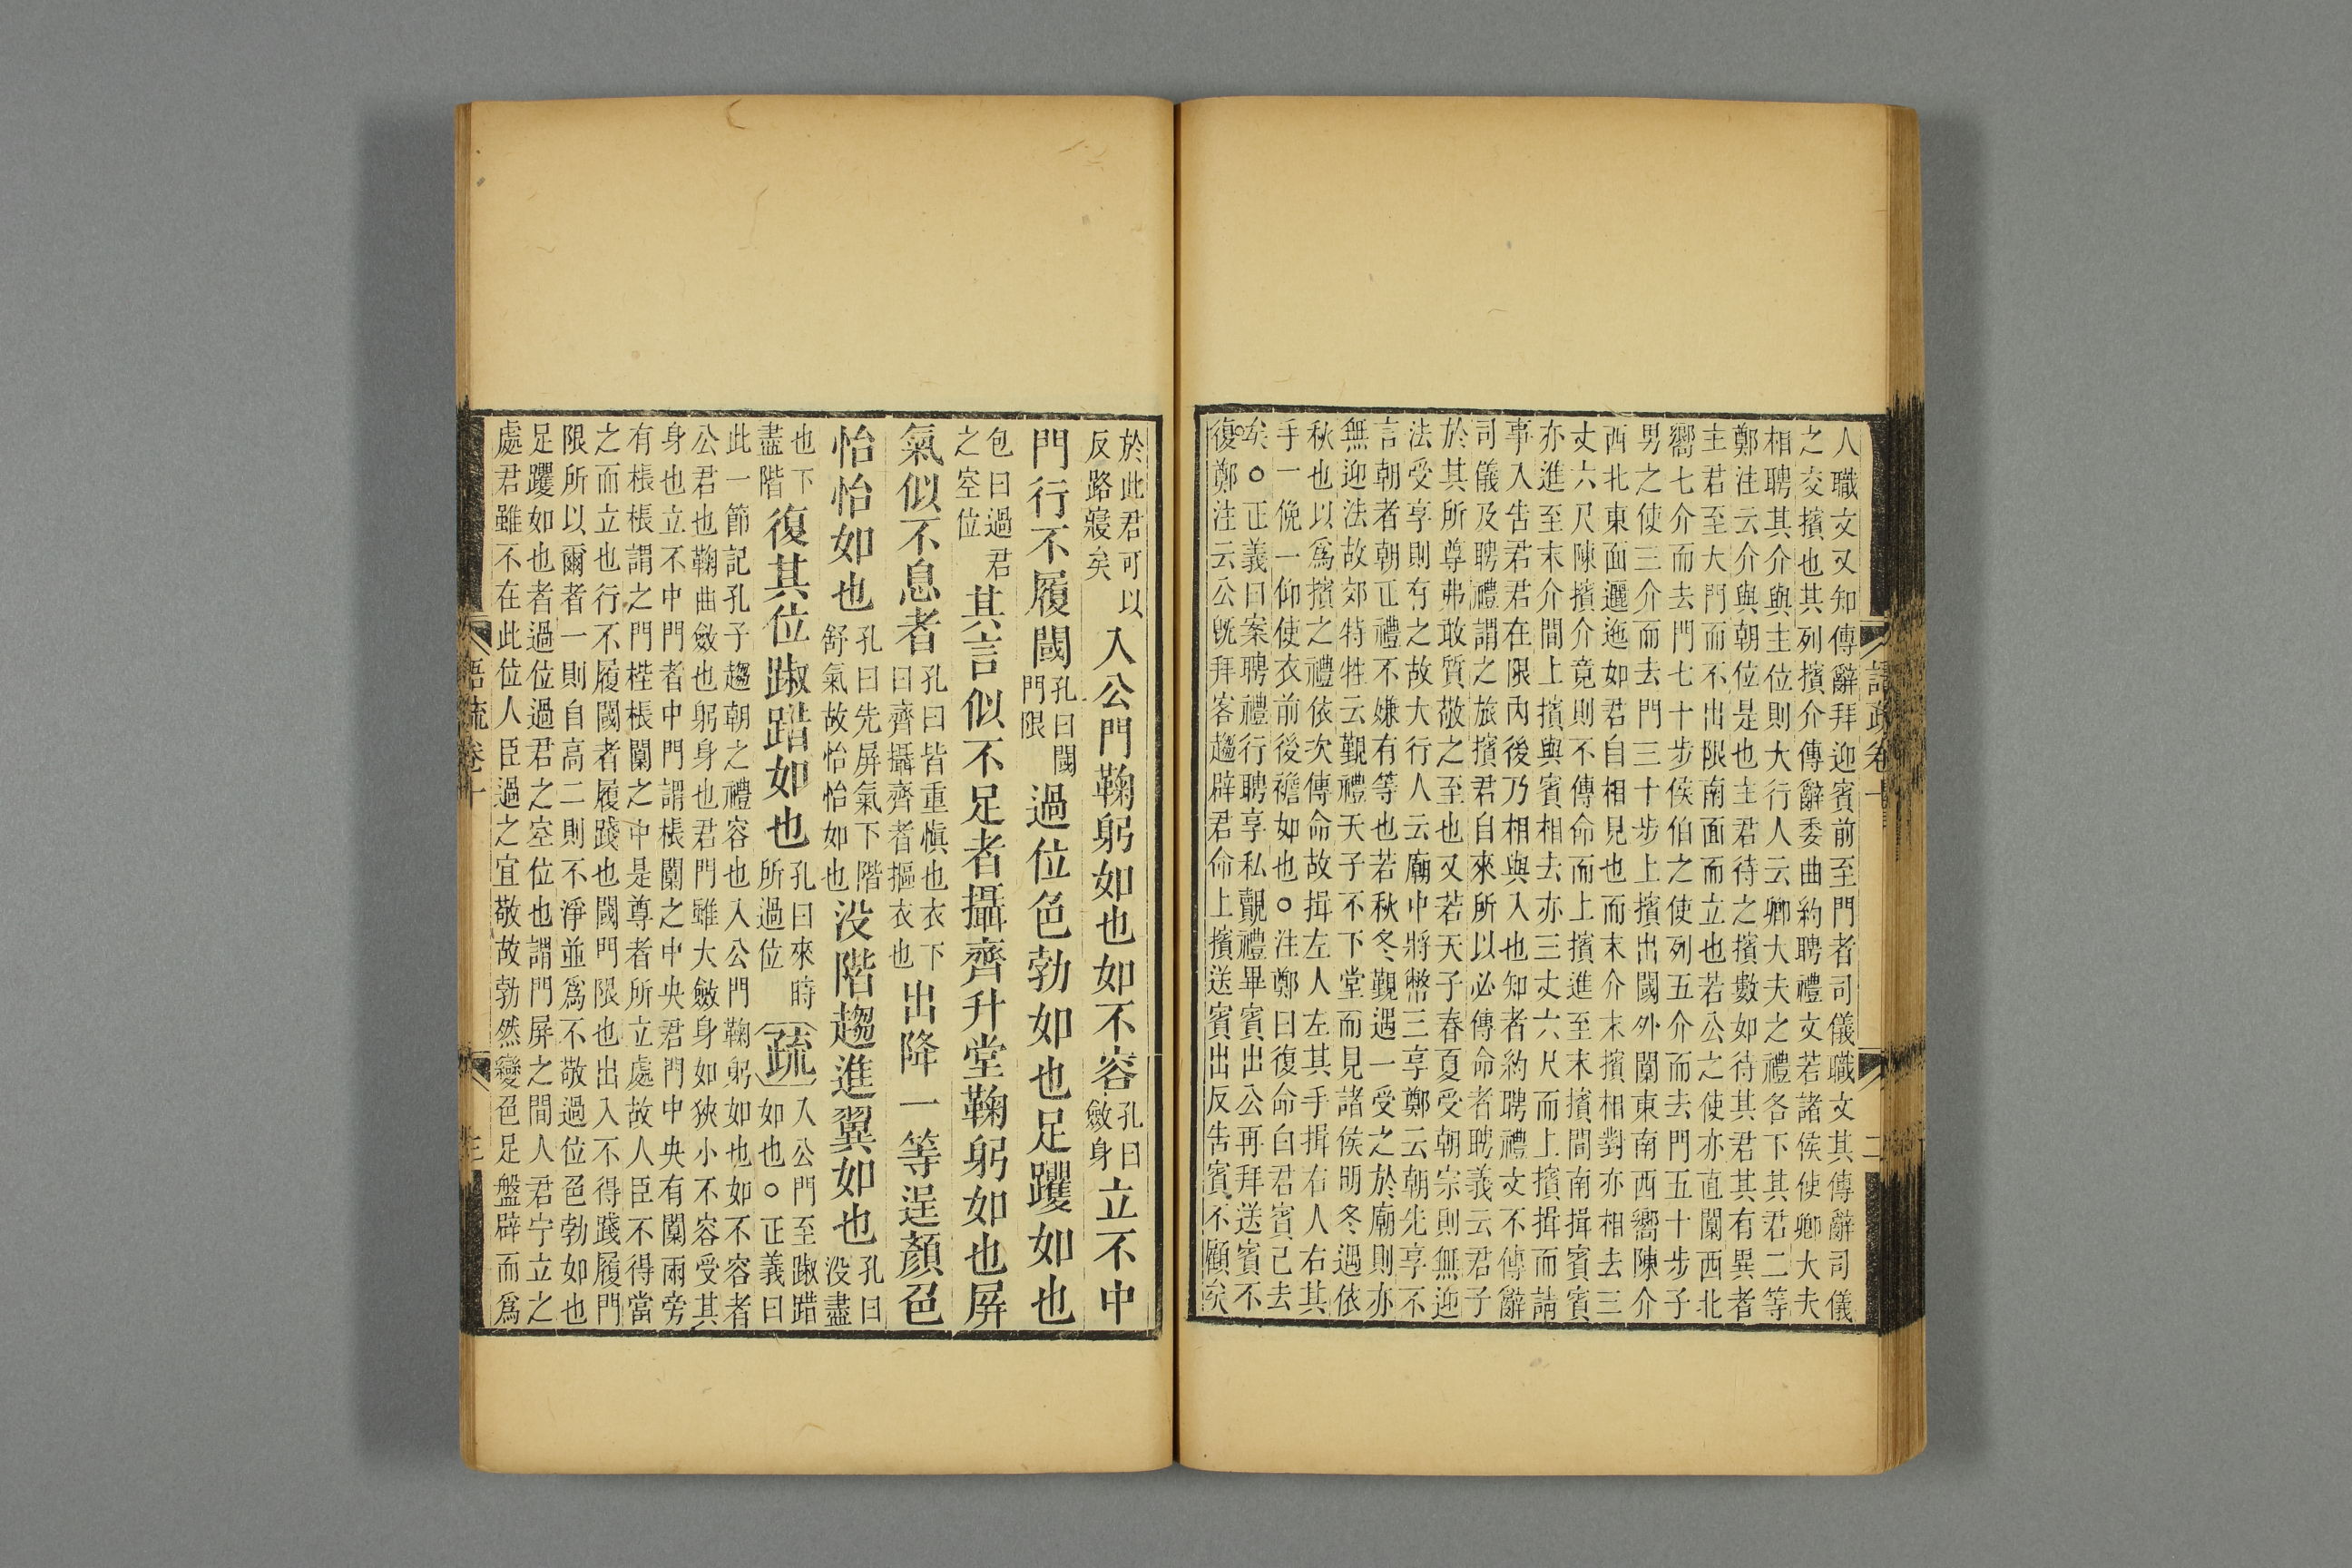 人職文又知傳辭拜迎賓前至門者司儀職文其傳辭司儀
之交擯也其列擯介傳辭委曲約聘禮文若諸侯使卿大夫
相聘其介與主位則大行人云卿大夫之禮各下其君二等
鄭注云介與朝位是也主君待之擯數如待其君其有異者
主君至大門而不出限南面而立也若公之使亦直闑西北
嚮七介而去門七十步侯伯之使列五介而去門五十步子
男之使三介而去門三十步上擯出閾外闑東南西嚮陳介
西北東面邐迤如君自相見也而末介末擯相對亦相去三
丈六尺陳擯介竟則不傳命而上擯進至末擯間南揖賓賓
亦進至末介間上擯與賓相去亦三丈六尺而上擯揖而請
事入告君君在限內後乃相與入也知者約聘禮文不傳辭
司儀及聘禮謂之旅擯君自來所以必傳命者聘義云君子
於其所尊弗敢質敬之至也又若天子春夏受朝宗則無迎
法受享則有之故大行人云廟中將幣三享鄭云朝先享不
言朝者朝正禮不嫌有等也若秋冬覲遇一受之於廟則亦
無迎法故郊特牲云覲禮天子不下堂而見諸侯明冬遇依
秋也以爲擯之禮依次傳命故揖左人左其手揖右人右其
手一俛一仰使衣前後襜如也○注鄭曰復命白君賓已去
矣○正義曰案聘禮行聘享私覿禮畢賓出公再拜送賓不
復鄭注云公既拜客趨辟君命上擯送賓出反告賓不顧矣
語疏卷十
二
於此君可以
反路寢矣
入公門鞠躬如也如不容
孔曰
斂身
立不中
門行不履閾
孔曰閾
門限
過位色勃如也足躩如也
包曰過君
之空位
其言似不足者攝齊升堂鞠躬如也屏
氣似不息者
孔曰皆重慎也衣下
曰齊攝齊者摳衣也
出降一等逞顏色
怡怡如也
孔曰先屏氣下階
舒氣故怡怡如也
没階趨進翼如也
孔曰
没盡
也下
盡階
復其位踧踖如也
孔曰來時
所過位
疏
入公門至踧踖
如也○正義曰
此一節記孔子趨朝之禮容也入公門鞠躬如也如不容者
公君也鞠曲斂也躬身也君門雖大斂身如狹小不容受其
身也立不中門者中門謂棖闑之中央君門中央有闑兩旁
有棖棖謂之門梐棖闑之中是尊者所立處故人臣不得當
之而立也行不履閾者履踐也閾門限也出入不得踐履門
限所以爾者一則自高二則不淨並爲不敬過位色勃如也
足躩如也者過位過君之空位也謂門屏之間人君宁立之
處君雖不在此位人臣過之宜敬故勃然變色足盤辟而爲
語疏卷十